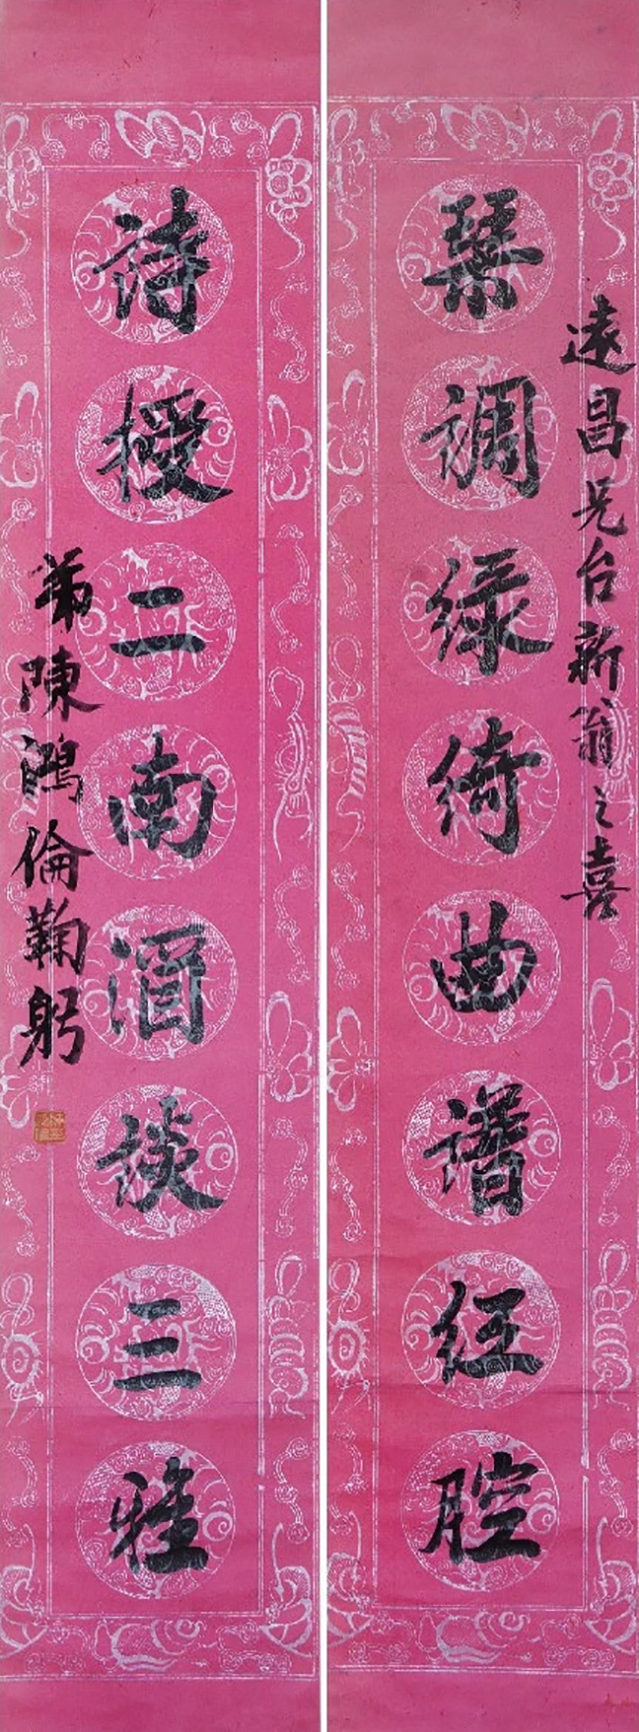 遠昌兄台新翁之喜
琹調綠綺曲譜紅腔
詩授二南酒談三雅
弟陳鴻倫鞠躬